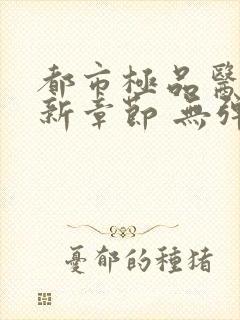 都市極品醫
新章節 無彈
憂郁的種猪